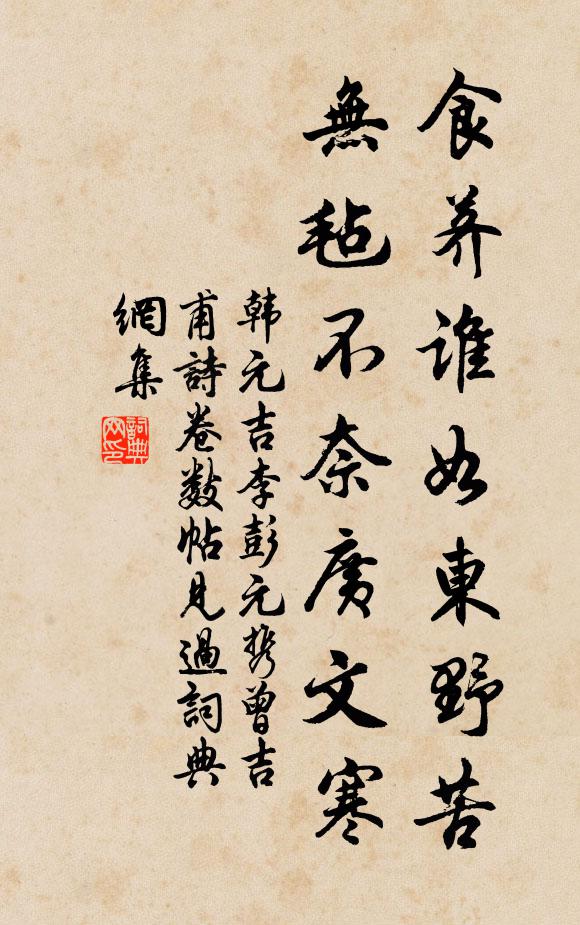 食荠谁如東野苦
無毡不奈廣文寒
韩元吉李彭元携曾吉
甫詩卷数帖见過詞典
網集
詞典
网印